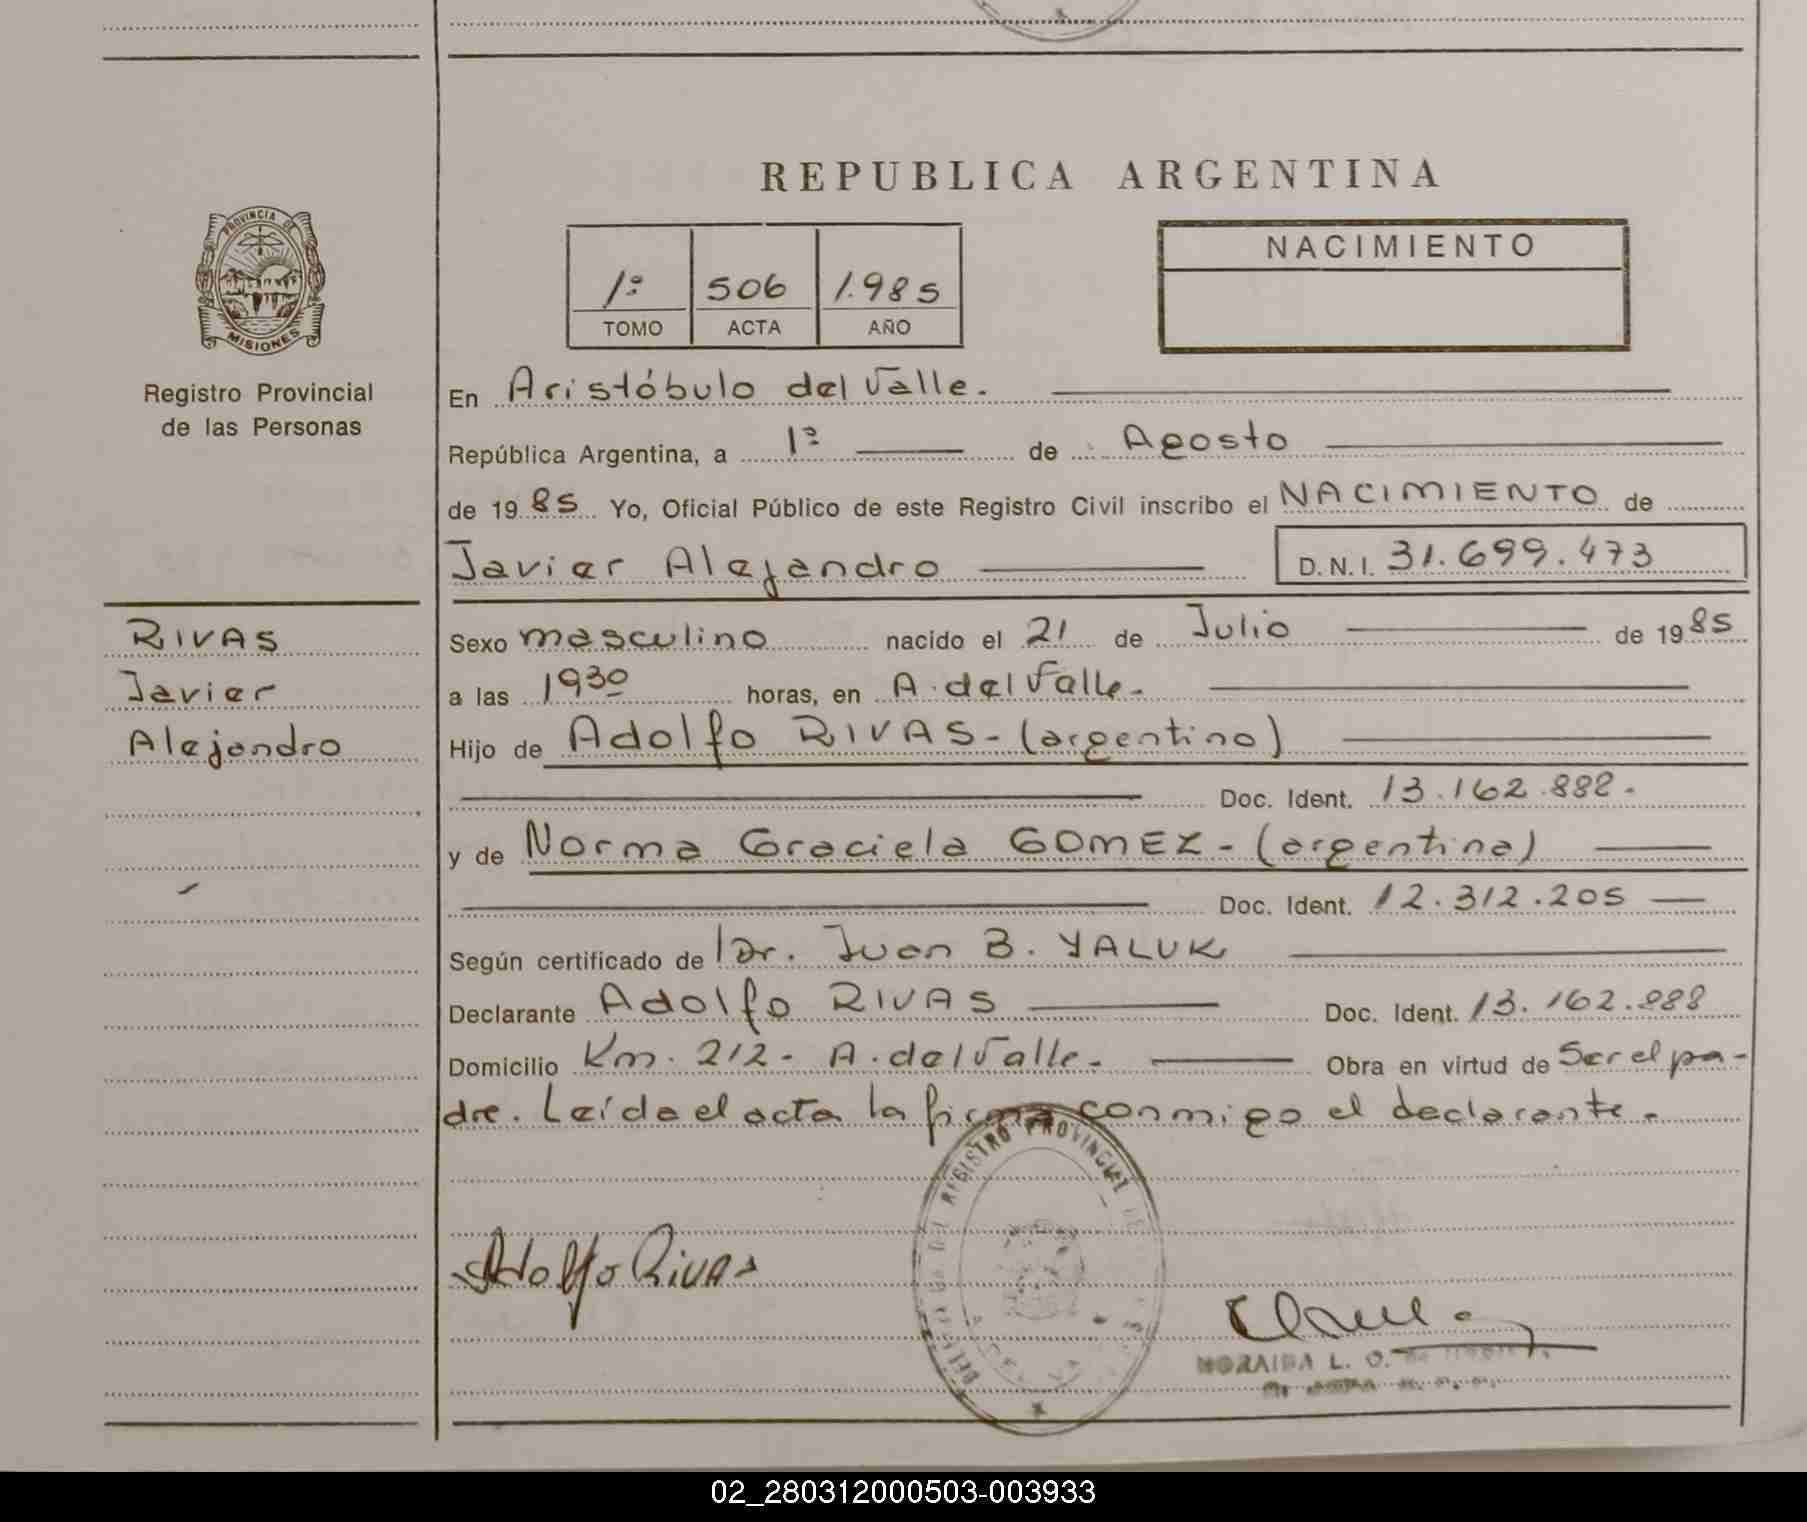 REPUBLICA ARGENTINA
PROVINCIA DE
MISIONES
Registro Provincial
de las Personas
1º 506 1.985
TOMO ACTA AÑO
NACIMIENTO
En Aristóbulo del Valle.
República Argentina, a 1º de Agosto
de 19 85 Yo, Oficial Público de este Registro Civil inscribo el NACIMIENTO de
Javier Alejandro D.N.I. 31.699.473
RIVAS
Javier
Alejandro
Sexo masculino nacido el 21 de Julio de 19 85
a las 1930 horas, en A. del Valle.
Hijo de Adolfo RIVAS - (argentino)
Doc. Ident. 13.162.888.
y de Norma Graciela GOMEZ - (argentina)
Doc. Ident. 12.312.205
Según certificado de Dr. Juan B. YALUK
Declarante Adolfo RIVAS Doc. Ident. 13.162.888
Domicilio Km. 212 - A. del Valle. Obra en virtud de Ser el pa-
dre. Leída el acta la firma conmigo el declarante.
DEL REGISTRO PROVINCIAL DE
Adolfo Rivas
NORAIDA L. O.
02_280312000503-003933